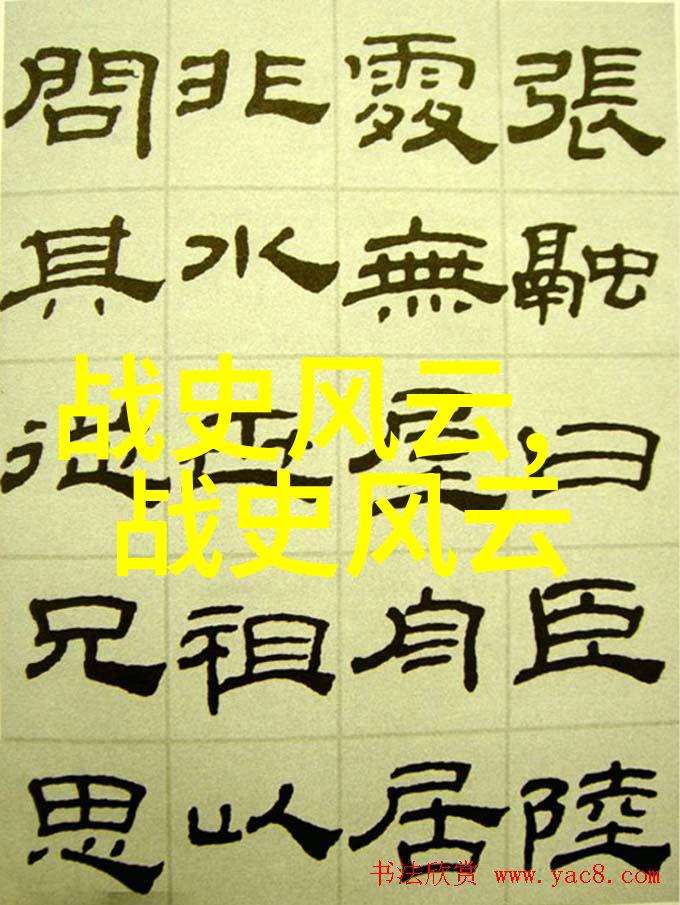 張融曰臣陸
處無屋舟居
非水祖以
問其從兄思
战史风云,
战史风云
书法欣赏 www.yac8.com